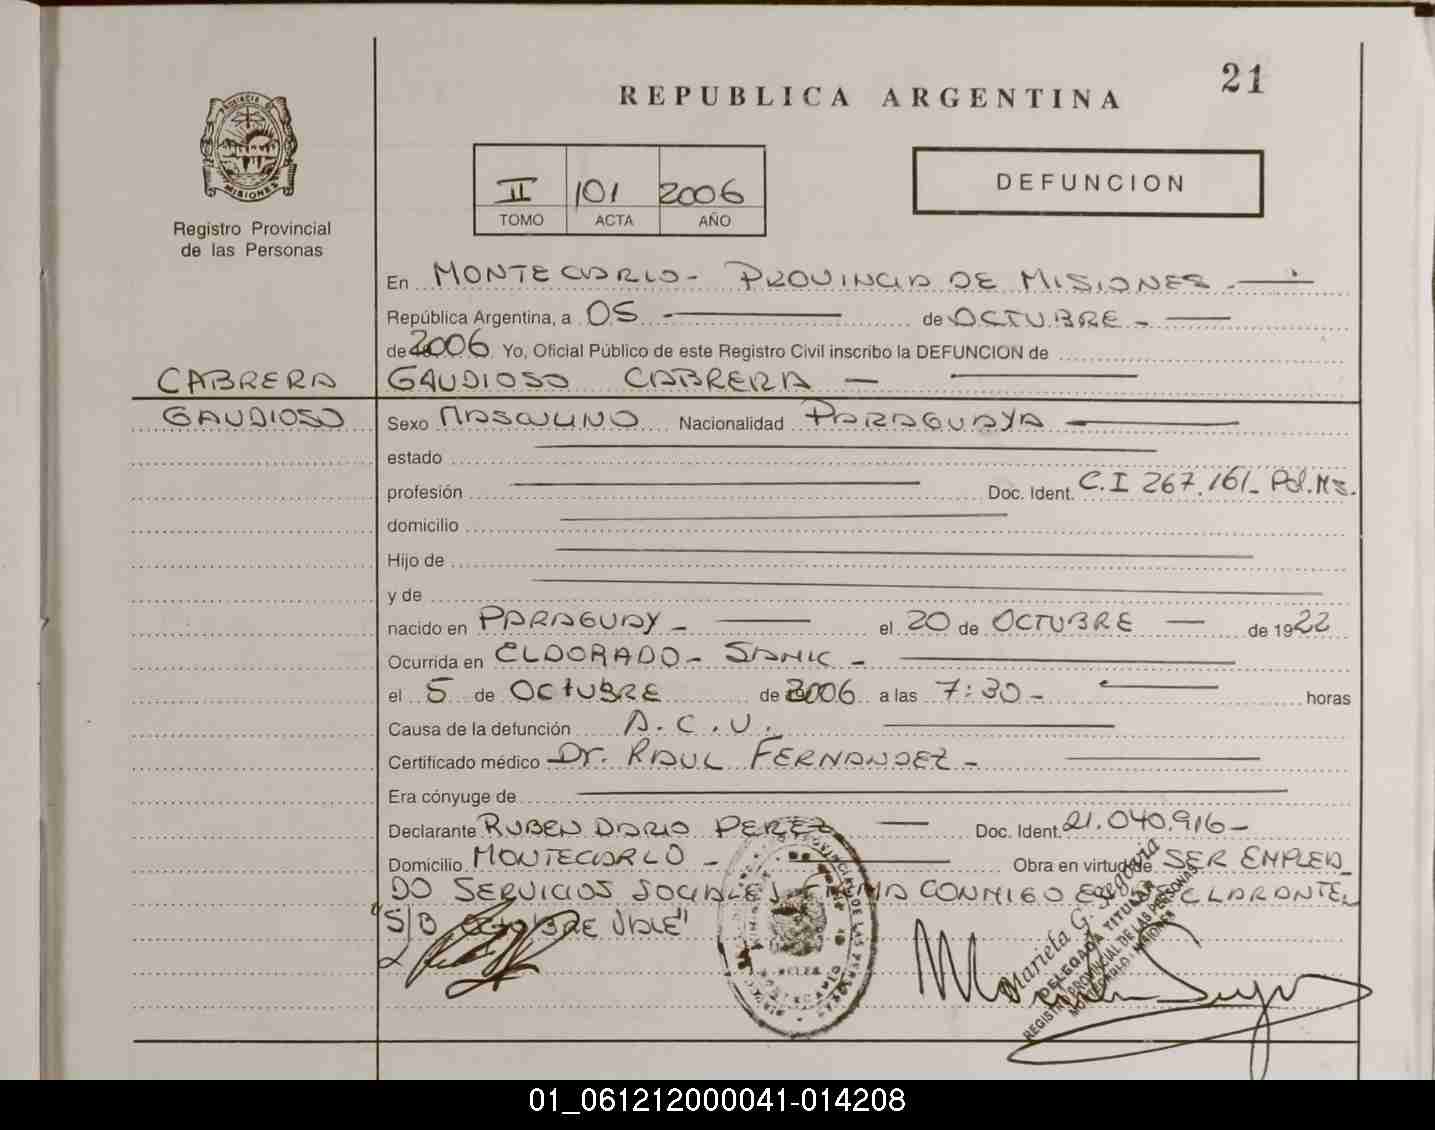 21
REPUBLICA ARGENTINA
PROVINCIA DE
MISIONES
Registro Provincial
de las Personas
II 101 2006
TOMO ACTA AÑO
DEFUNCION
En MONTECARLO - PROVINCIA DE MISIONES -
República Argentina, a 05 de OCTUBRE -
de 2006. Yo, Oficial Público de este Registro Civil inscribo la DEFUNCION de
CABRERA
GAUDIOSO
GAUDIOSO CABRERA —
Sexo MASCULINO Nacionalidad PARAGUAYA
estado
profesión Doc. Ident. C.I 267.161 - Pol. Ms.
domicilio
Hijo de
y de
nacido en PARAGUAY - el 20 de OCTUBRE — de 1922
Ocurrida en ELDORADO - SAMIC -
el 5 de OCTUBRE de 2006 a las 7:30 - horas
Causa de la defunción A.C.V.
Certificado médico Dr. RAUL FERNANDEZ -
Era cónyuge de
Declarante RUBEN DARIO PEREZ — Doc. Ident. 21.040.916 -
Domicilio MONTECARLO - Obra en virtud de SER EMPLEA_
DO SERVICIOS SOCIALES FIRMA CONMIGO EL DECLARANTE
"S/B OCTUBRE VALE"
Mariela G. Segovia
DELEGADA TITULAR
REGISTRO PROVINCIAL DE LAS PERSONAS
MONTECARLO - MISIONES
01_061212000041-014208